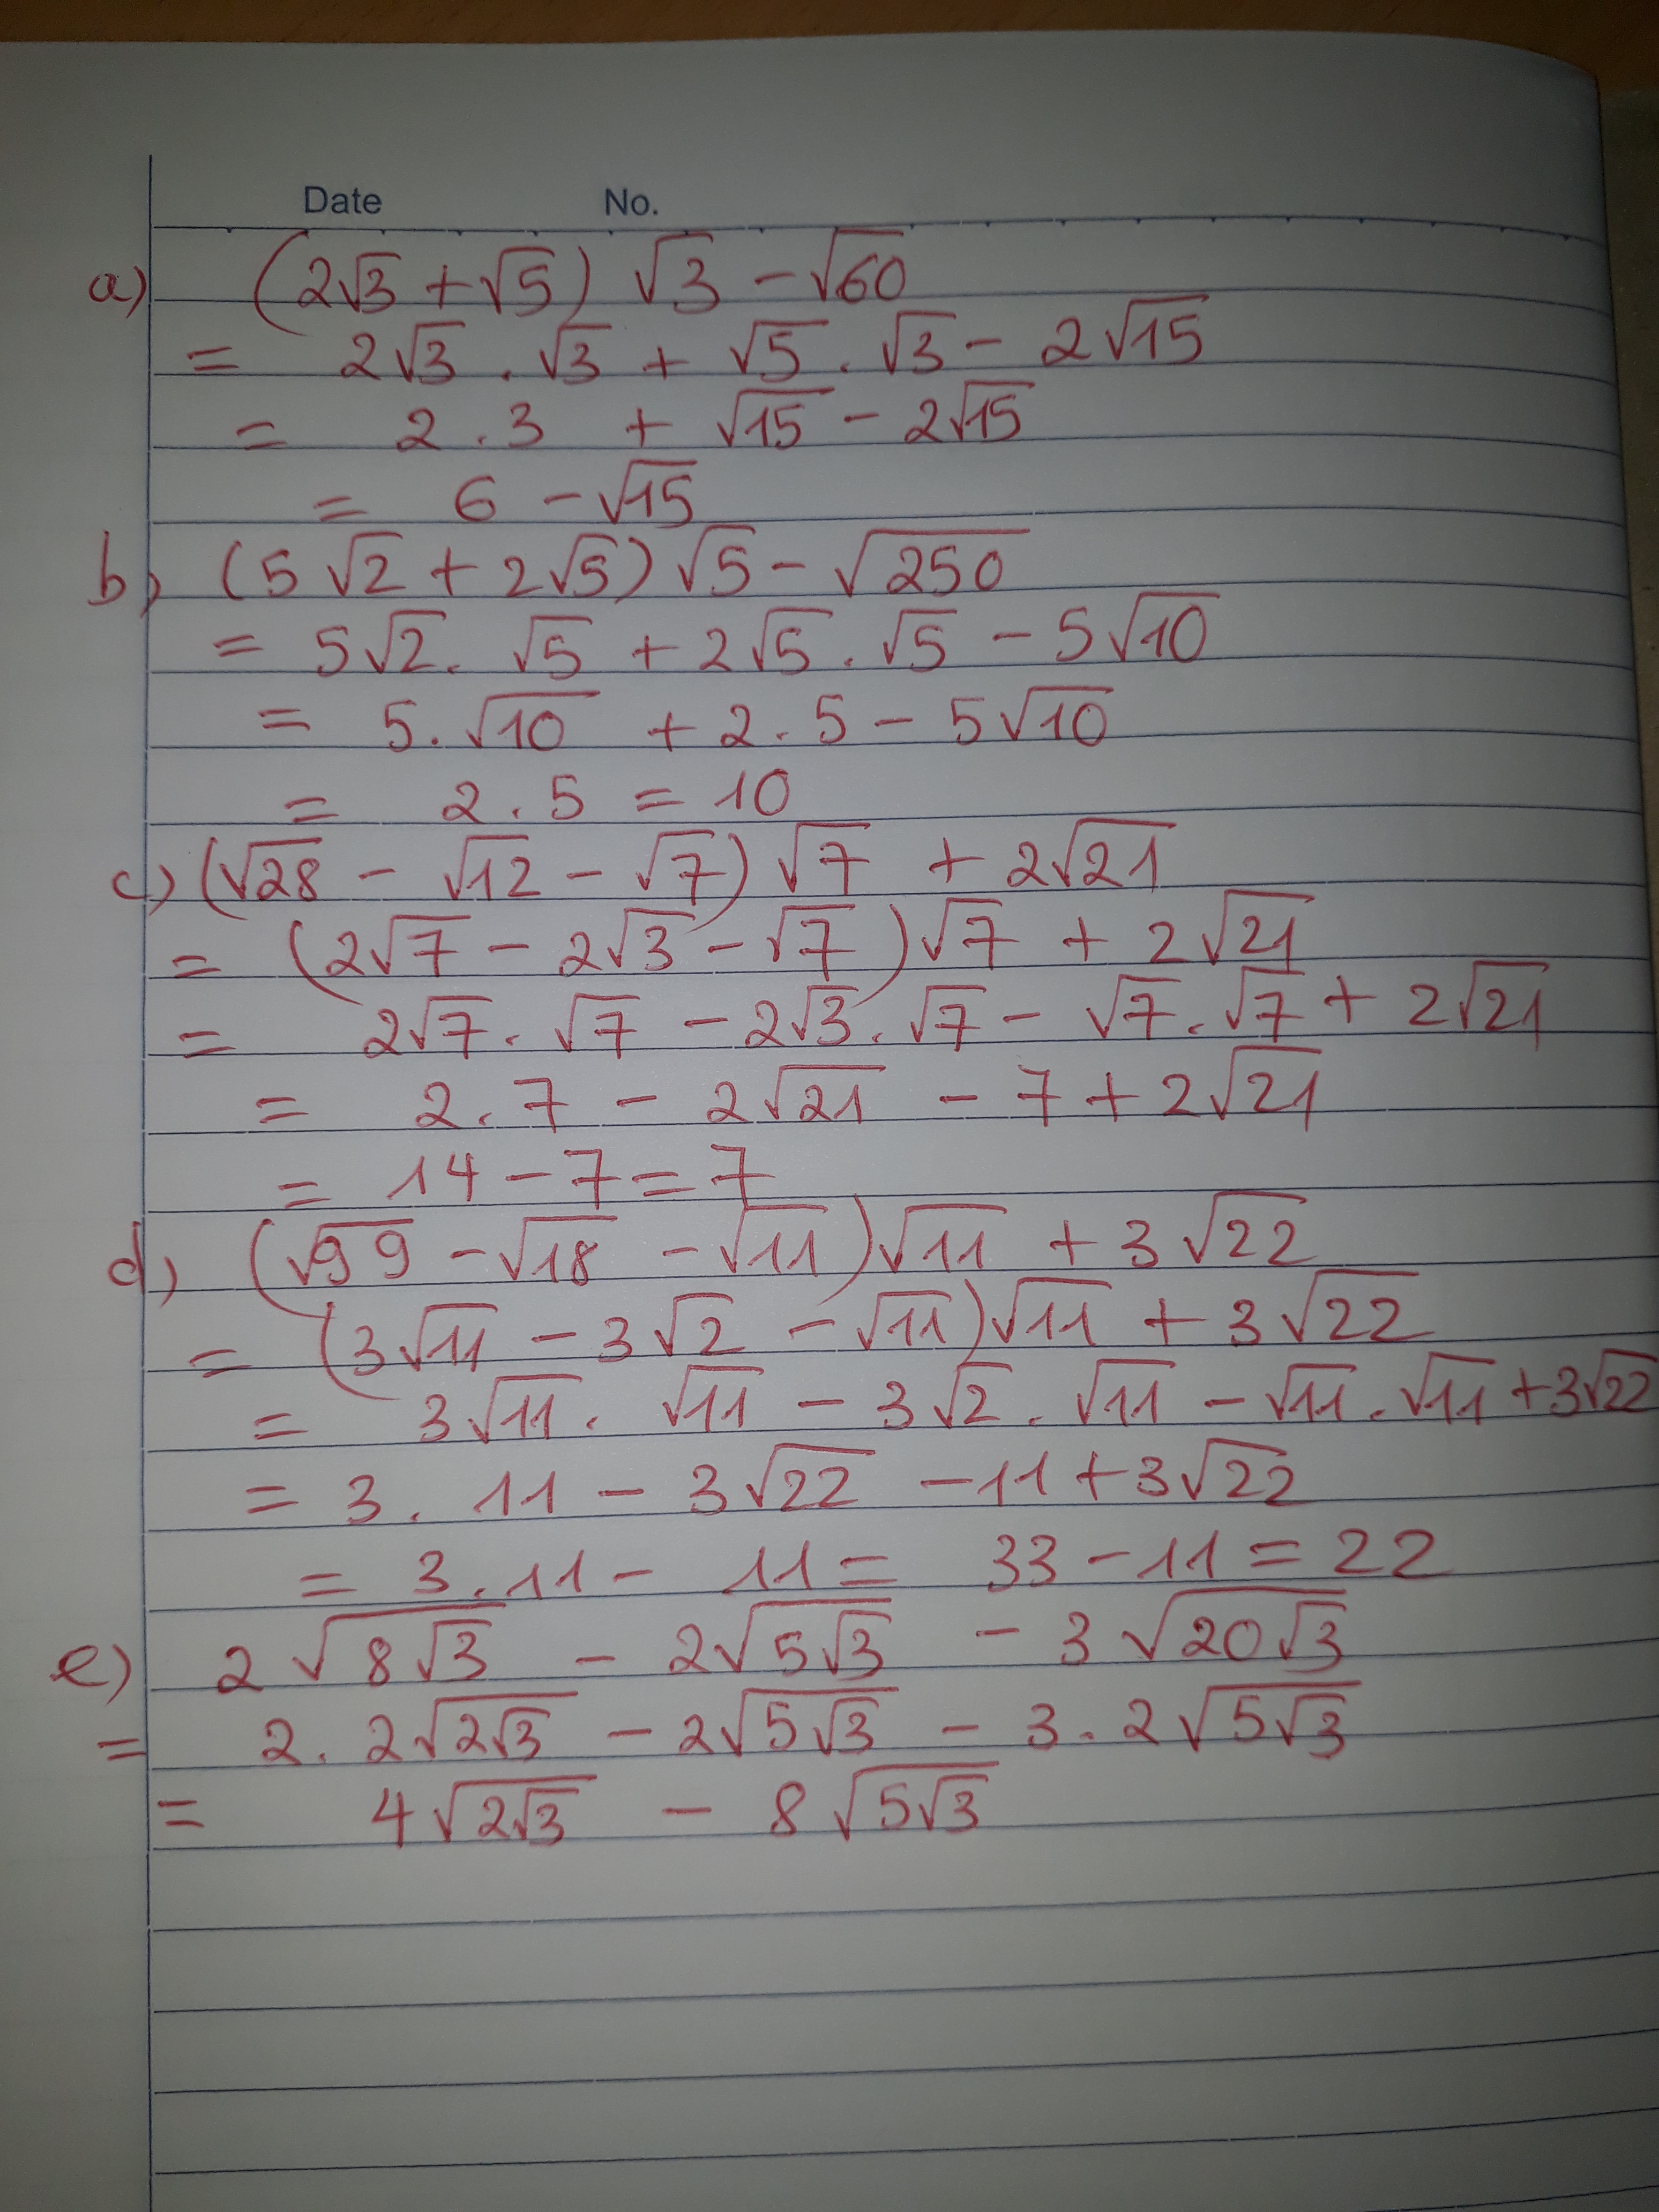 Date No.
a) (2√3 + √5) √3 - √60
= 2√3 . √3 + √5 . √3 - 2√15
= 2 . 3 + √15 - 2√15
= 6 - √15
b) (5√2 + 2√5) √5 - √250
= 5√2 . √5 + 2√5 . √5 - 5√10
= 5 . √10 + 2 . 5 - 5√10
= 2 . 5 = 10
c) (√28 - √12 - √7) √7 + 2√21
= (2√7 - 2√3 - √7) √7 + 2√21
= 2√7 . √7 - 2√3 . √7 - √7 . √7 + 2√21
= 2 . 7 - 2√21 - 7 + 2√21
= 14 - 7 = 7
d) (√99 - √18 - √11) √11 + 3√22
= (3√11 - 3√2 - √11) √11 + 3√22
= 3√11 . √11 - 3√2 . √11 - √11 . √11 + 3√22
= 3 . 11 - 3√22 - 11 + 3√22
= 3 . 11 - 11 = 33 - 11 = 22
e) 2√(8√3) - 2√(5√3) - 3√(20√3)
= 2 . 2√(2√3) - 2√(5√3) - 3 . 2√(5√3)
= 4√(2√3) - 8√(5√3)